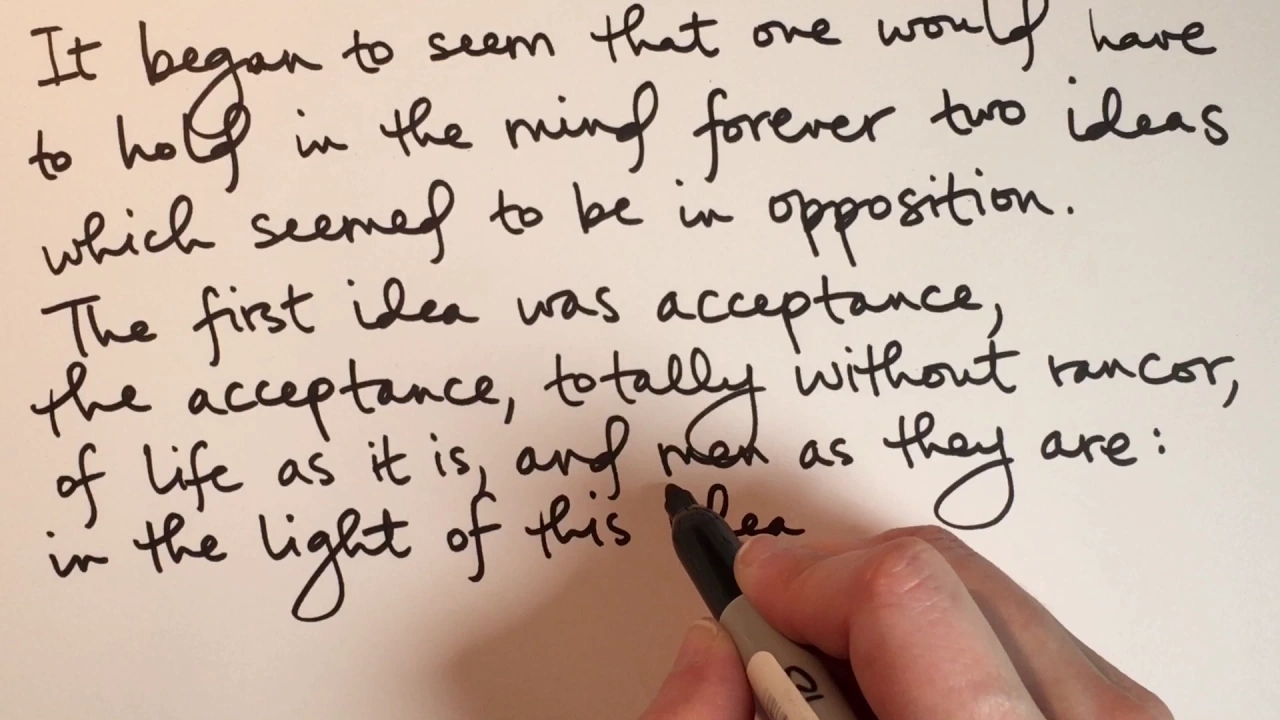 It began to seem that one would have
to hold in the mind forever two ideas
which seemed to be in opposition.
The first idea was acceptance,
the acceptance, totally without rancor,
of life as it is, and men as they are:
in the light of this idea